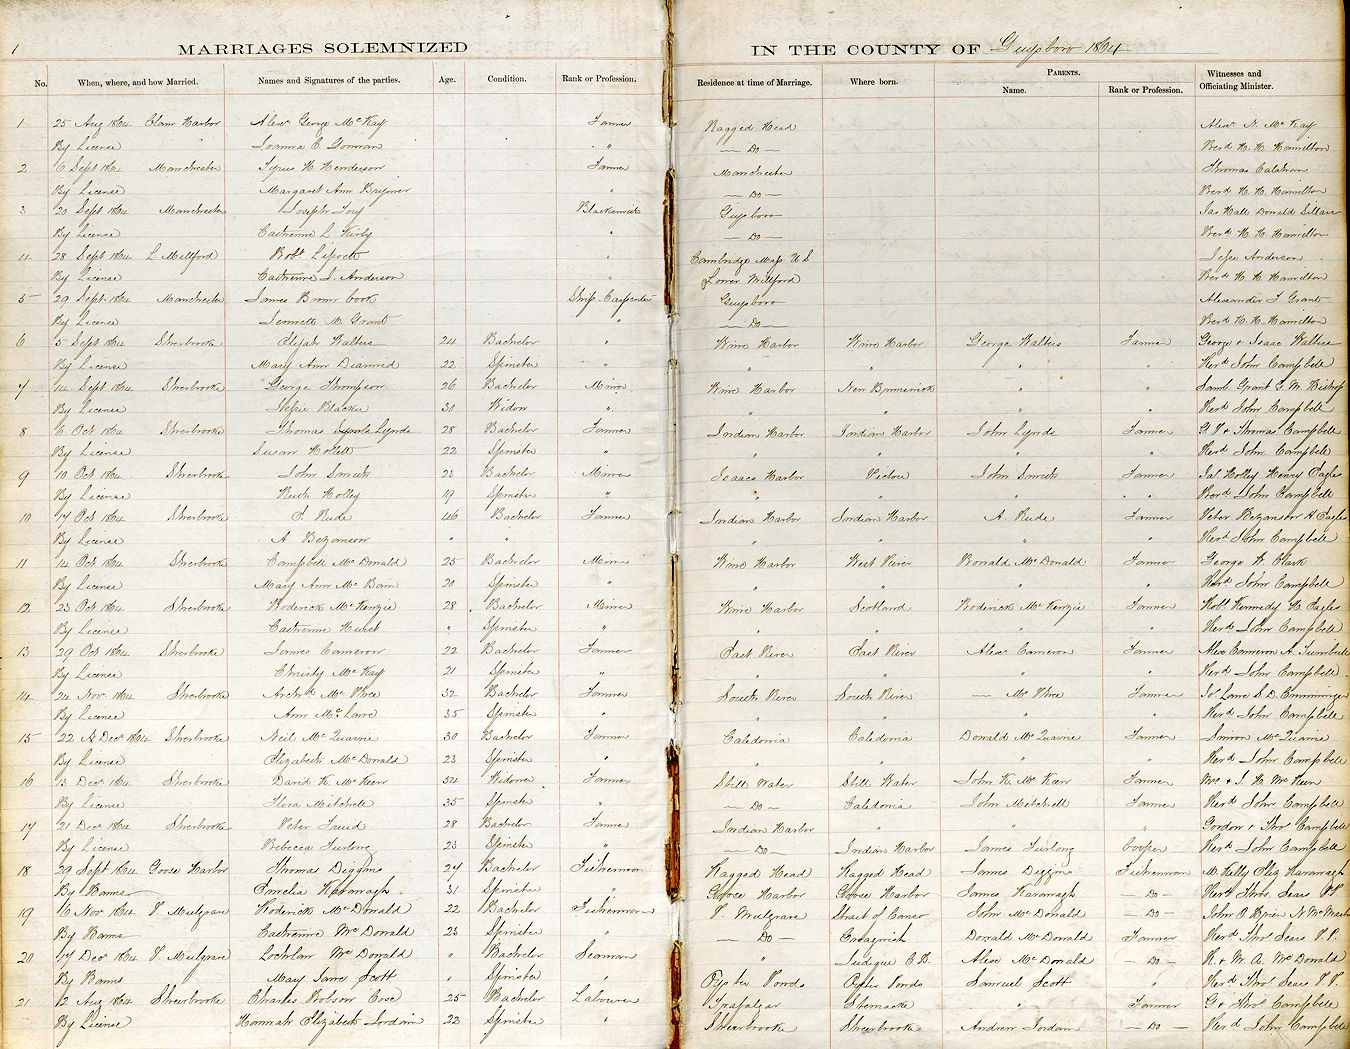 1 MARRIAGES SOLEMNIZED IN THE COUNTY OF Guysboro 1864
No. When, where, and how Married. Names and Signatures of the parties. Age. Condition. Rank or Profession. Residence at time of Marriage. Where born. PARENTS. Name. Rank or Profession. Witnesses and Officiating Minister.
1 25 Aug 1864 Harbor Alexr George McKay Farmer Ragged Head Alexr N. McKay
By License Joanna C Gorman " — Do — Revd H. H. Hamilton
2 6 Sept 1864 Manchester H. Henderson Farmer Manchester Thomas
By License Margaret Ann " — Do — Revd H. H. Hamilton
3 20 Sept 1864 Manchester Joseph Blacksmith Guysboro Jas Hall Donald
By License Catherine L Kirby " — Do — Revd H. H. Hamilton
4 28 Sept 1864 L Millford Robt " Cambridge Mass U S Anderson
By License Catherine J. Anderson " Lower Millford Revd H. H. Hamilton
5 29 Sept. 1864 Manchester James book Ship-Carpenter Guysboro Alexander J Grant
By License Jennett M Grant " — Do — Revd H. H. Hamilton
6 5 Sept 1864 Sherbrooke Elijah Walters 24 Bachelor " Wine Harbor Wine Harbor George Walters Farmer George & Isaac Walters
By License Mary Ann 22 Spinster " " " " " Revd John Campbell
7 14 Sept 1864 Sherbrooke George Thompson 26 Bachelor Miner Wine Harbor New Brunswick " " Saml Grant G. M. Bishop
By License 30 Widow " " " " " Revd John Campbell
8 6 Oct 1864 Sherbrooke Thomas Lynds 28 Bachelor Farmer Indian Harbor Indian Harbor John Lynds Farmer & Thomas Campbell
By License Susan 22 Spinster " " " " " Revd John Campbell
9 10 Oct 1864 Sherbrooke John Smith 23 Bachelor Miner Isaacs Harbor Pictou John Smith Farmer Jas Holley Henry
By License Ruth Holley 19 Spinster " " " " " Revd John Campbell
10 17 Oct 1864 Sherbrooke Rude 46 Bachelor Farmer Indian Harbor Indian Harbor A Rude Farmer Peter Bezanson
By License A Bezanson " " " " " " Revd John Campbell
11 14 Oct 1864 Sherbrooke Campbell McDonald 25 Bachelor Miner Wine Harbor West River Ronald McDonald Farmer George Clark
By License Mary Ann McBain 20 Spinster " " " " " Revd John Campbell
12 23 Oct 1864 Sherbrooke Roderick McKenzie 28 Bachelor Miner Wine Harbor Scotland Roderick McKenzie Farmer Robt Kennedy
By License Catherine Hurst " Spinster " " " " " Revd John Campbell
13 29 Oct 1864 Sherbrooke James Cameron 22 Bachelor Farmer East River East River Alexr Cameron Farmer Alex Cameron A.
By License Christy McKay 21 Spinster " " " " " Revd John Campbell
14 24 Nov 1864 Sherbrooke Archd McPhee 32 Bachelor Farmer South River South River — McPhee Farmer Lane S. D. Cumminger
By License Ann McLane 35 Spinster " " " " " Revd John Campbell
15 22 Decr 1864 Sherbrooke Neil McQuarrie 30 Bachelor Farmer Caledonia Caledonia Donald McQuarrie Farmer Simon McQuarrie
By License Elizabeth McDonald 23 Spinster " " " " " Revd John Campbell
16 13 Decr 1864 Sherbrooke David K. McKeen 54 Widower Farmer Still Water Still Water John K. McKeen Farmer McKeen
By License Flora Mitchell 35 Spinster " — Do — Caledonia John Mitchell Farmer Revd John Campbell
17 21 Decr 1864 Sherbrooke Peter 28 Bachelor Farmer Indian Harbor " " " Gordon & Thos Campbell
By License Rebecca Furlong 23 Spinster " — Do — Indian Harbor James Furlong Cooper Revd John Campbell
18 29 Sept 1864 Goose Harbor Thomas Diggins 27 Bachelor Fisherman Ragged Head Ragged Head James Fisherman M. Kelly Eliz Kavanagh
By Banns Kavanagh 31 Spinster " Goose Harbor Goose Harbor James Kavanagh — Do — Revd Thos Sears P.P.
19 16 Nov 1864 P Mulgrave Roderick McDonald 22 Bachelor Fisherman P Mulgrave Strait of Canso John McDonald — Do — John O'Brien
By Banns Catherine McDonald 23 Spinster " — Do — Donald McDonald Farmer Revd Thos Sears P.P.
20 17 Decr 1864 P Mulgrave Lochlan McDonald " Bachelor Seaman " Judique C.B. Alexr McDonald — Do — R & W. A. McDonald
By Banns Mary Jane Scott " Spinster " Oyster Ponds Oyster Ponds Samuel Scott " Revd Thos Sears P.P.
21 12 Aug 1864 Sherbrooke Charles Robson 25 Bachelor Labourer Trafalgar " Farmer G & Thos Campbell
By License Hannah Elizabeth Jordain 22 Spinster " Sherbrooke Sherbrooke Andrew Jordain — Do — Revd John Campbell